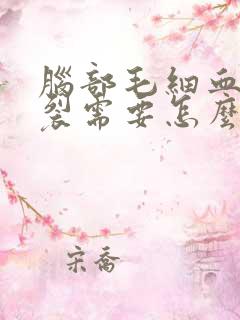 腦部毛細血
裂需要怎麼
宋喬